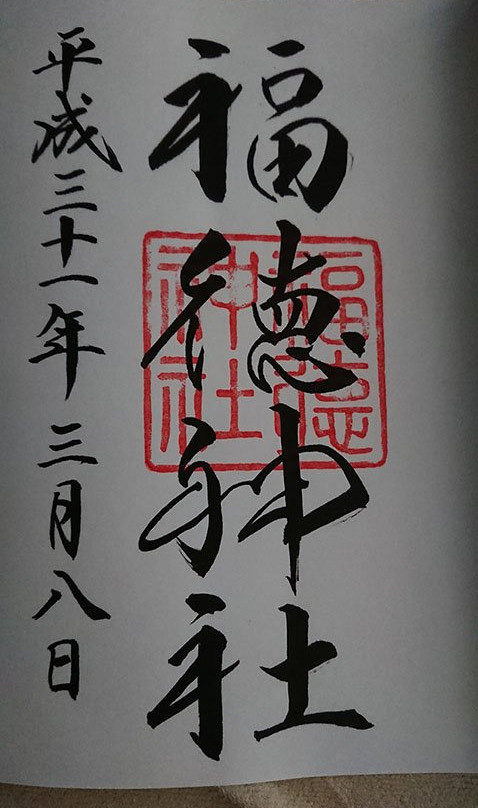 福徳神社
福徳
神社
平成三十一年三月八日